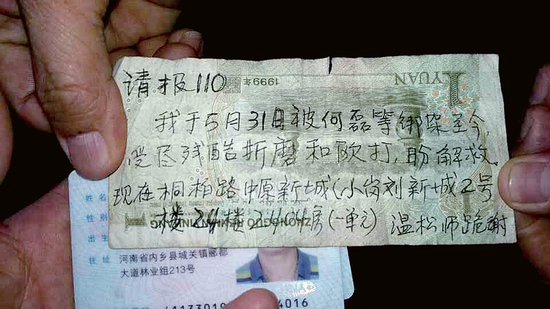 YUAN
1999年
1
请报110
我于5月31日被何磊等绑架至今
受尽残酷折磨和殴打,盼解救
现在桐柏路中原新城(小岗刘新城2号
楼24楼2404房(一单元) 温松师跪谢
姓名
性别
出生
河南省内乡县城关镇郦都
大道林业组213号
4016